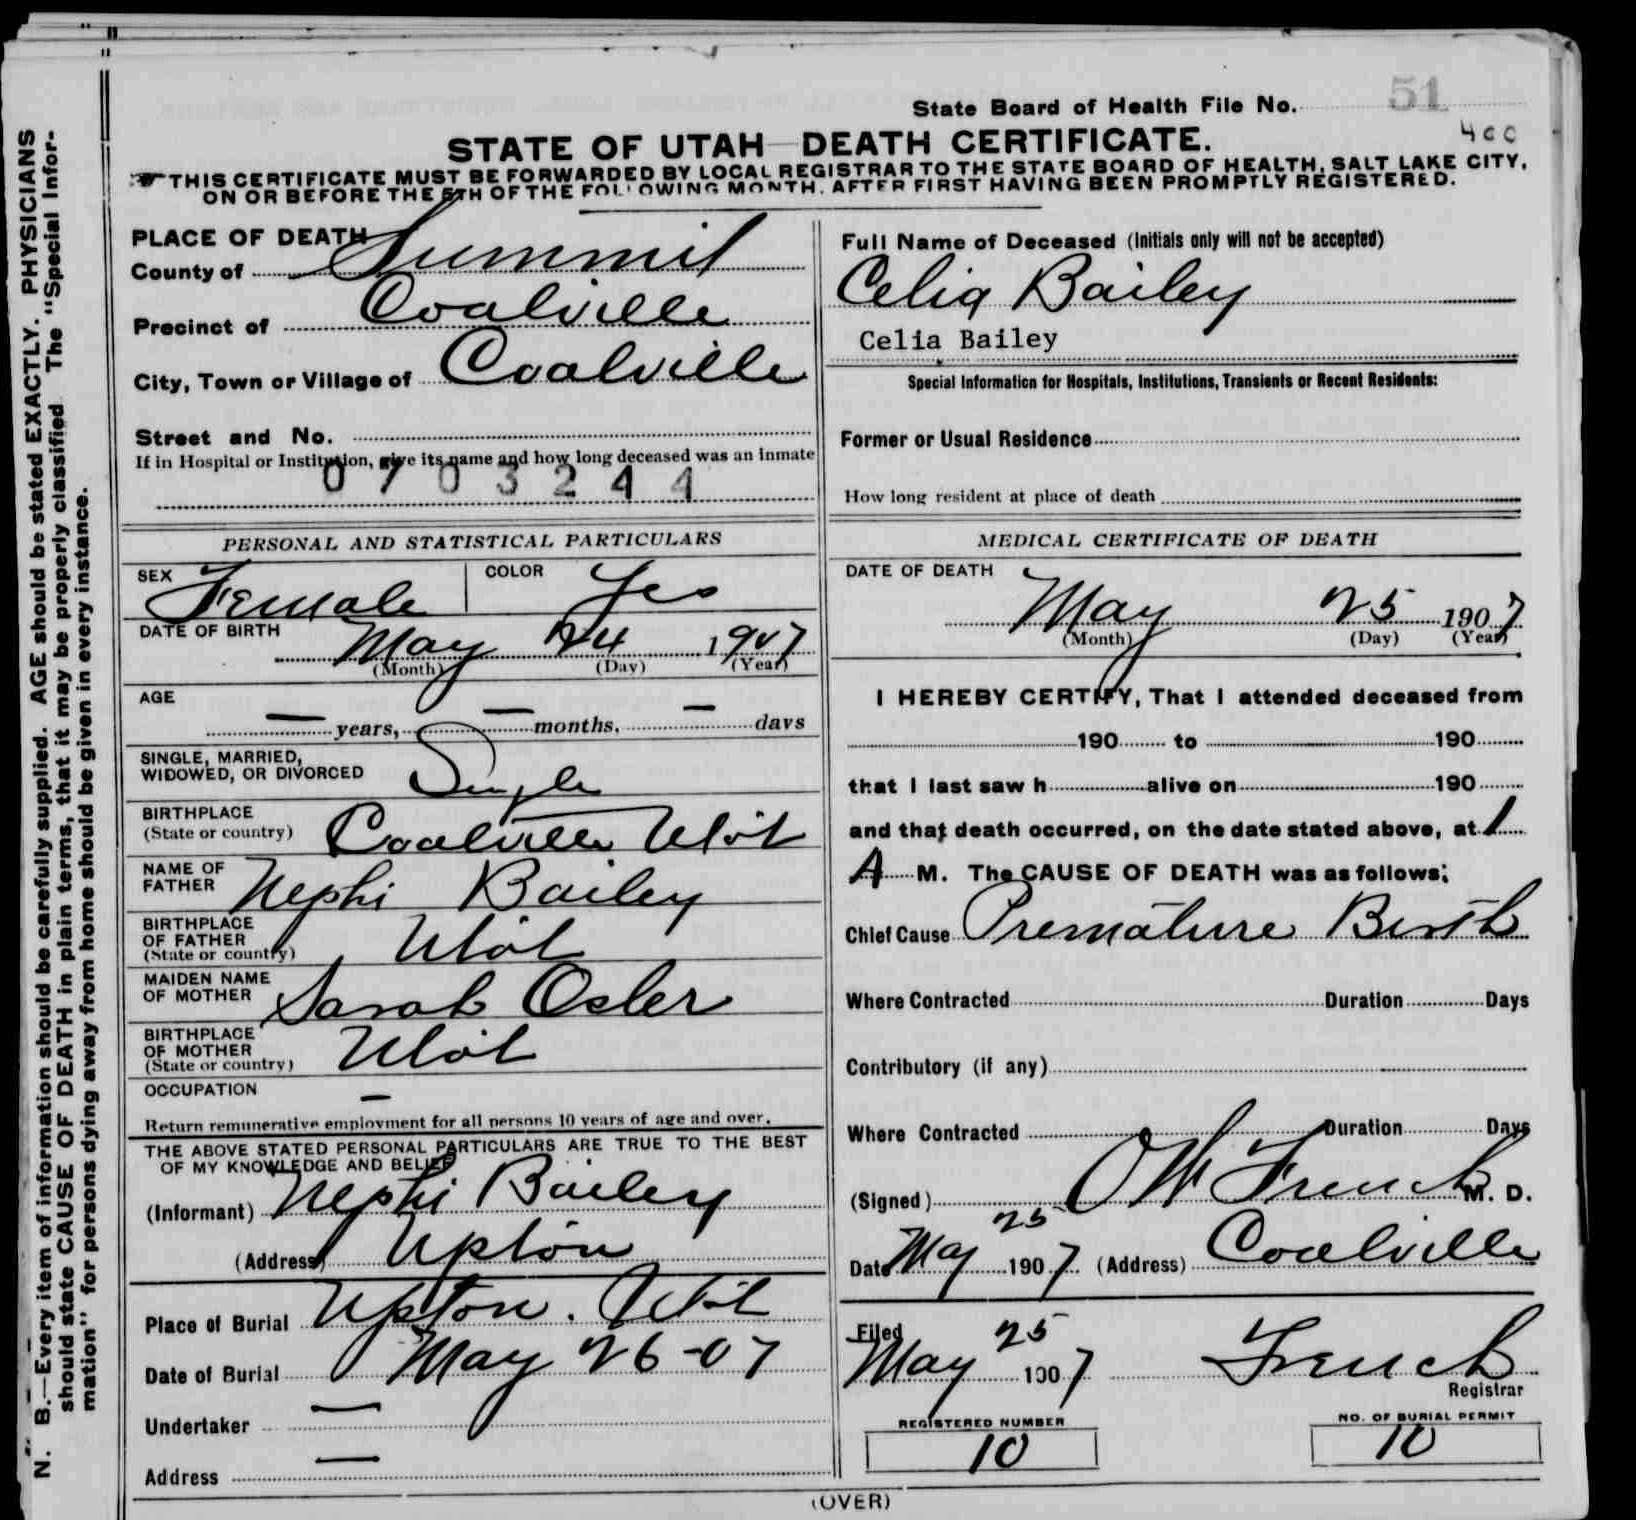 State Board of Health File No. 51
400
STATE OF UTAH DEATH CERTIFICATE.
THIS CERTIFICATE MUST BE FORWARDED BY LOCAL REGISTRAR TO THE STATE BOARD OF HEALTH, SALT LAKE CITY,
ON OR BEFORE THE 5TH OF THE FOLLOWING MONTH, AFTER FIRST HAVING BEEN PROMPTLY REGISTERED.
N. B.—Every item of information should be carefully supplied. AGE should be stated EXACTLY. PHYSICIANS
should state CAUSE OF DEATH in plain terms, that it may be properly classified The "Special Infor-
mation" for persons dying away from home should be given in every instance.
PLACE OF DEATH
County of Summit
Precinct of Coalville
City, Town or Village of Coalville
Street and No.
If in Hospital or Institution, give its name and how long deceased was an inmate
0703244
Full Name of Deceased (Initials only will not be accepted)
Celia Bailey
Celia Bailey
Special Information for Hospitals, Institutions, Transients or Recent Residents:
Former or Usual Residence
How long resident at place of death
PERSONAL AND STATISTICAL PARTICULARS
SEX Female COLOR Yes
DATE OF BIRTH May 24 1907
(Month) (Day) (Year)
AGE
— years, — months, — days
SINGLE, MARRIED,
WIDOWED, OR DIVORCED Single
BIRTHPLACE
(State or country) Coalville Utah
NAME OF
FATHER Nephi Bailey
BIRTHPLACE
OF FATHER
(State or country) Utah
MAIDEN NAME
OF MOTHER Sarah Osler
BIRTHPLACE
OF MOTHER
(State or country) Utah
OCCUPATION —
Return remunerative employment for all persons 10 years of age and over.
THE ABOVE STATED PERSONAL PARTICULARS ARE TRUE TO THE BEST
OF MY KNOWLEDGE AND BELIEF
(Informant) Nephi Bailey
(Address) Upton
Place of Burial Upton. Utah
Date of Burial May 26-07
Undertaker —
Address —
MEDICAL CERTIFICATE OF DEATH
DATE OF DEATH
May 25 1907
(Month) (Day) (Year)
I HEREBY CERTIFY, That I attended deceased from
190 to 190
that I last saw h alive on 190
and that death occurred, on the date stated above, at 1
A M. The CAUSE OF DEATH was as follows:
Chief Cause Premature Birth
Where Contracted Duration Days
Contributory (if any)
Where Contracted Duration Days
(Signed) French M. D.
Date May 25 1907 (Address) Coalville
Filed
May 25 1907 French
Registrar
REGISTERED NUMBER
10
NO. OF BURIAL PERMIT
10
(OVER)